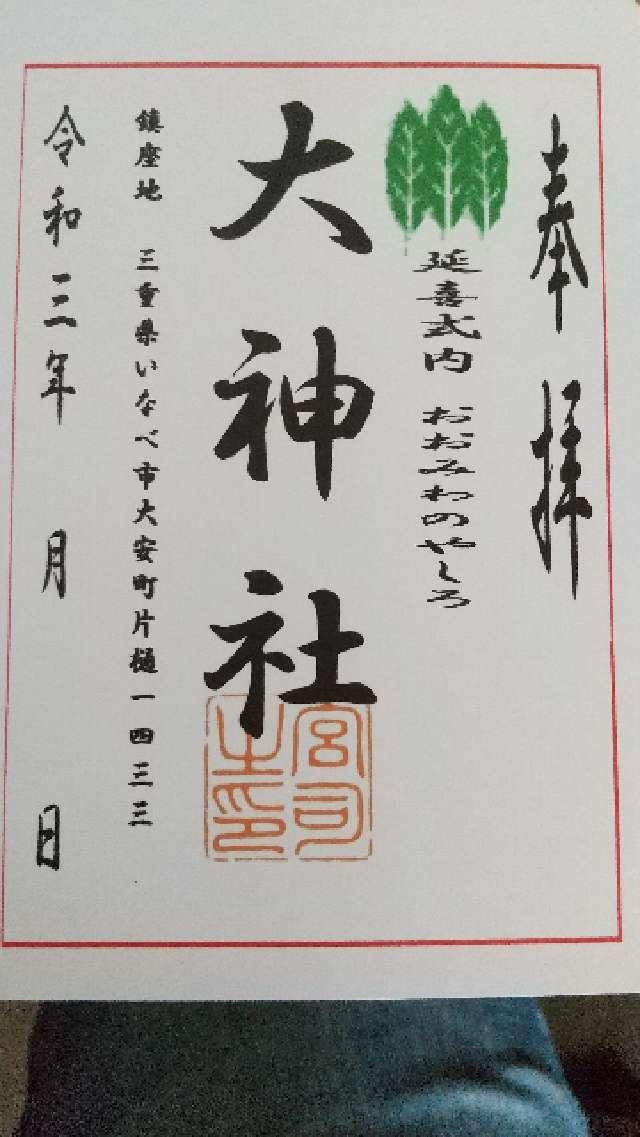 奉拝
延喜式内 おおみわのやしろ
大神社
宮司之印
鎮座地 三重県いなべ市大安町片樋一四三三
令和三年 月 日